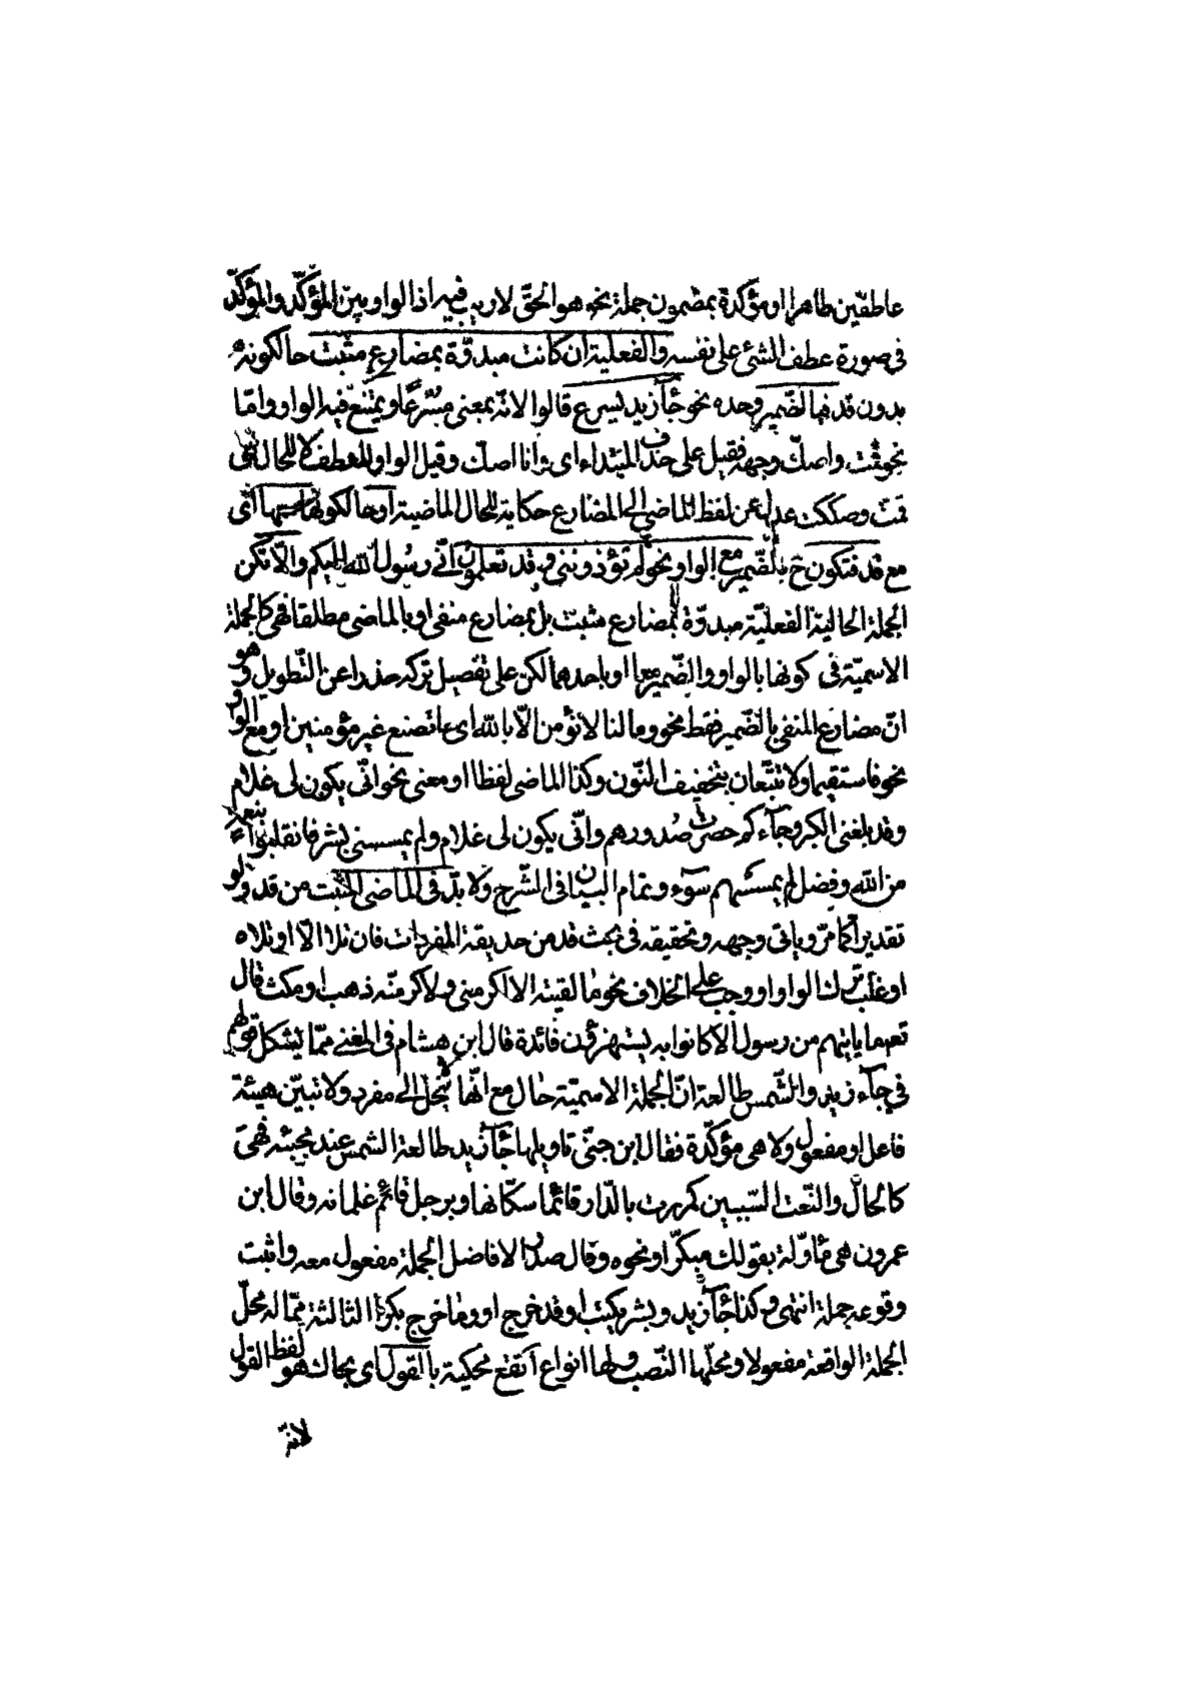 عاطفين ظاهرا او مؤكدة بمضمون جملة نحو هو الحقّ لا ريب فيه اذ الواو بين المؤكِّد والمؤكَّد
فى صورة عطف الشئ على نفسه والفعلية ان كانت مبدوّة بمضارع مثبت حالكونه
بدون قد فبالضّمير وحده نحو جآء زيد يسرع قالوا لانّه بمعنى مسرعًا ويمتنع فيه الواو وامّا
نحو قمت واصكّ وجهه فقيل على حذف المبتداء اى وانا اصكّ وقيل الواو للعطف لا للحال
قمت وصككت عدل عن لفظ الماضي الى المضارع حكاية للحال الماضية او حالكونها اتى
مع قد فتكون ح بالضّمير مع الواو نحو لم تؤذوننى وقد تعلمون انّى رسول الله اليكم والّا تكن
الجملة الحالية الفعليّة مبدوّة بمضارع مثبت بل بمضارع منفى او بالماضى مطلقا فهى كالجملة
الاسميّة فى كونها بالواو والضّمير معا او باحدهما لكن على تفصيل تركه حذرا عن التّطويل وهو
انّ مضارع المنفى بالضّمير فقط نحو وما لنا لا نؤمن الّا بالله اى ما نصنع غير مؤمنين او مع الواو
نحو فاستقيما ولا تتبّعان بتخفيف النّون وكذا الماضى لفظا او معنى نحو انّى يكون لى غلام
وقد بلغنى الكبر وجآءكم حصرت صدورهم وانّى يكون لى غلام ولم يمسسنى بشر فانقلبوا بنعمة
من الله وفضل لم يمسسهم سوء وتمام البيان فى الشّرح ولا بدّ فى الماضى المثبت من قد ولو
تقديرا كما مرّ وياتى وجهه وتحقيقه فى بحث قد من حديقة المفردات فان تلا الّا او تلاه
او غلب ترك الواو او وجب على الخلاف نحو ما لقيته الا اكرمنى ولاكرمنّه ذهب او مكث قال
تعالى ما ياتيهم من رسول الا كانوا به يستهزؤن فائدة قال ابن هشام فى المغنى ممّا يشكل قولهم
فى جآء زيد والشّمس طالعة انّ الجملة الاسميّة حال مع انّها لا تنحلّ الى مفرد ولا تبيّن هيئة
فاعل او مفعول ولا هى مؤكّدة فقال ابن جنّى تاويلها جآء زيد طالعة الشمس عند مجيئه فهى
كالحال والنّعت السّببيين كمررت بالدّار قائما سكّانها وبرجل قائم غلمانه وقال ابن
عمرون هى مأوّلة بقولك مبكّرا ونحوه وقال صدر الافاضل الجملة مفعول معه واثبت
وقوعه جملة انتهى وكذا جآء زيد وبشر يكتب او قد خرج او وما خرج بكر الثالثة ممّا له محلّ
الجملة الواقعة مفعولا ومحلّها النّصب ولها انواع آ تقع محكية بالقول اى بما كان هو لفظ القول
لانّه